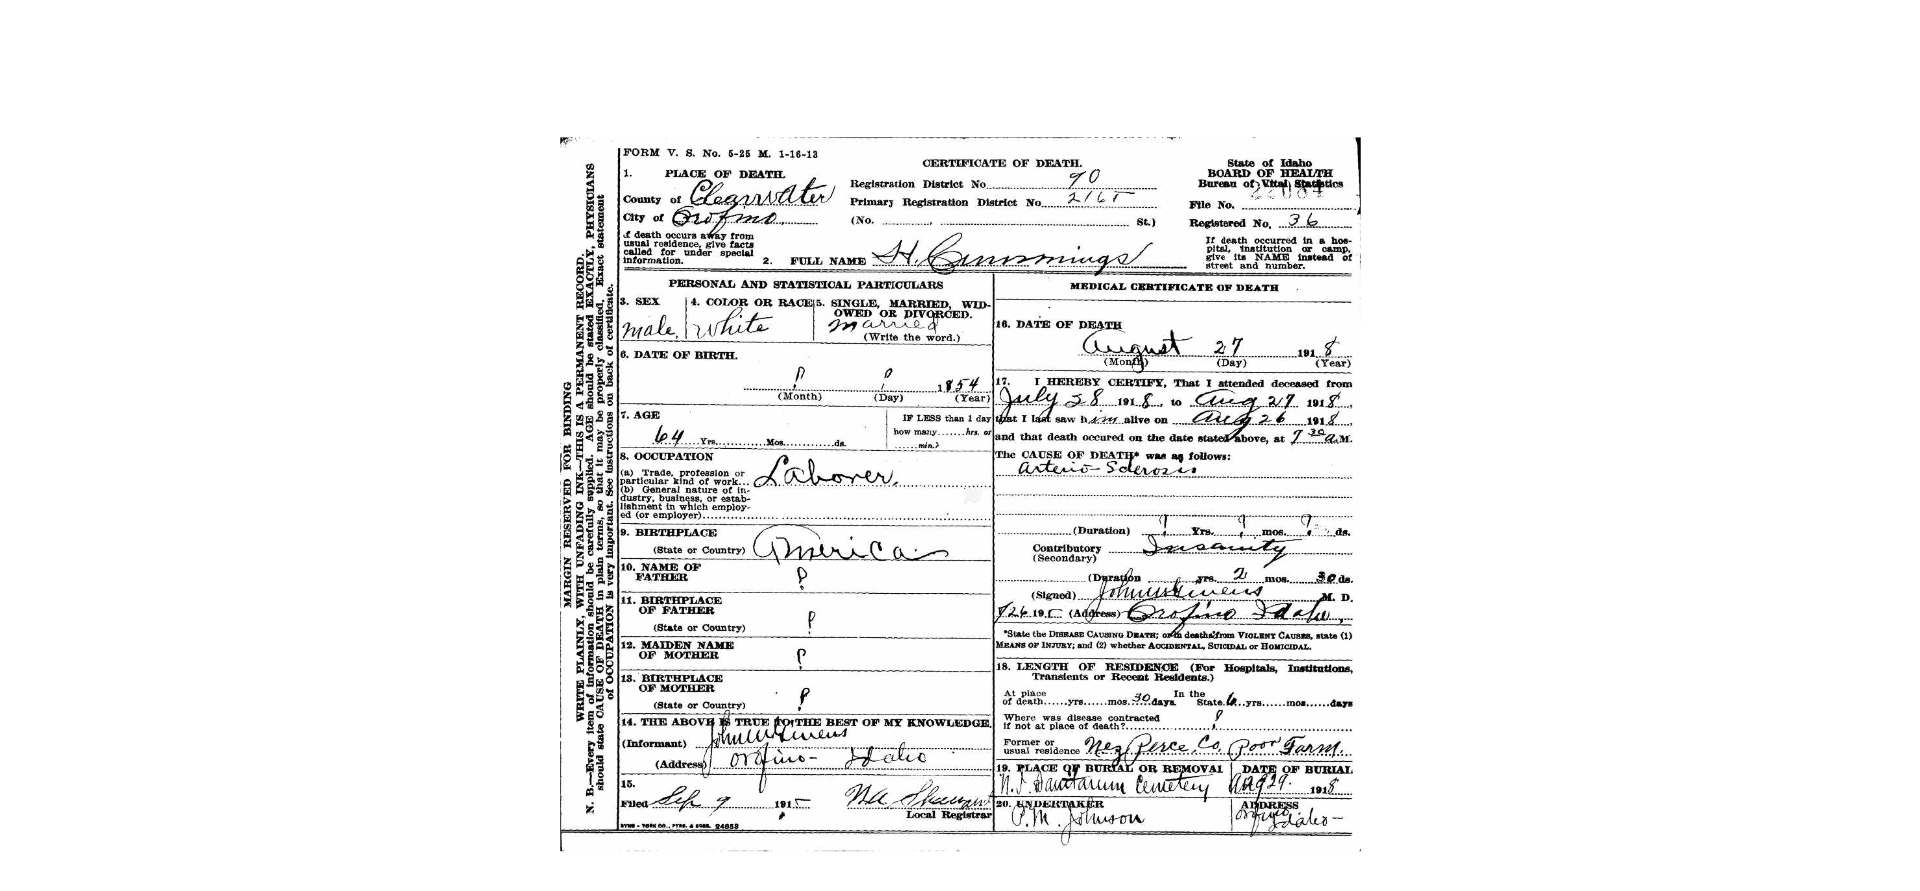 FORM V. S. No. 5-25 M. 1-16-13
CERTIFICATE OF DEATH.
State of Idaho
BOARD OF HEALTH
Bureau of Vital Statistics
File No.
Registered No. 36
If death occurred in a hospital, institution or camp, give its NAME instead of street and number.
1. PLACE OF DEATH.
County of Clearwater
City of Orofino
Registration District No. 90
Primary Registration District No. 2165
(No. St.)
If death occurs away from
usual residence, give facts
called for under special
information.
2. FULL NAME H. Cummings
MARGIN RESERVED FOR BINDING
WRITE PLAINLY, WITH UNFADING INK—THIS IS A PERMANENT RECORD.
N. B.—Every item of information should be carefully supplied. AGE should be stated EXACTLY, PHYSICIANS
should state CAUSE OF DEATH in plain terms, so that it may be properly classified. Exact statement
of OCCUPATION is very important. See instructions on back of certificate.
PERSONAL AND STATISTICAL PARTICULARS
3. SEX
male
4. COLOR OR RACE
White
5. SINGLE, MARRIED, WID-
OWED OR DIVORCED.
married
(Write the word.)
6. DATE OF BIRTH.
? ? 1854
(Month) (Day) (Year)
7. AGE
64 Yrs. Mos. ds.
IF LESS than 1 day
how many hrs. or
min.?
8. OCCUPATION
(a) Trade, profession or
particular kind of work... Laborer.
(b) General nature of in-
dustry, business, or estab-
lishment in which employ-
ed (or employer)
9. BIRTHPLACE
(State or Country) America
10. NAME OF
FATHER ?
11. BIRTHPLACE
OF FATHER
(State or Country) ?
12. MAIDEN NAME
OF MOTHER ?
13. BIRTHPLACE
OF MOTHER
(State or Country) ?
14. THE ABOVE IS TRUE TO THE BEST OF MY KNOWLEDGE.
(Informant) John W Givens
(Address) Orofino- Idaho
15.
Filed Sep 9 1915
Local Registrar
24853
MEDICAL CERTIFICATE OF DEATH
16. DATE OF DEATH
August 27 1918
(Month) (Day) (Year)
17. I HEREBY CERTIFY, That I attended deceased from
July 28 1918, to Aug 27 1918,
that I last saw him alive on Aug 26 1918,
and that death occured on the date stated above, at 7 30 a.M.
The CAUSE OF DEATH* was as follows:
Arterio-Sclerosis
(Duration) ? Yrs. ? mos. ? ds.
Contributory Insanity
(Secondary)
(Duration yrs. 2 mos. 30 ds.
(Signed) John W Givens M. D.
(Address) Orofino Idaho,
*State the DISEASE CAUSING DEATH; or in deaths from VIOLENT CAUSES, state (1)
MEANS OF INJURY; and (2) whether ACCIDENTAL, SUICIDAL or HOMICIDAL.
18. LENGTH OF RESIDENCE (For Hospitals, Institutions,
Transients or Recent Residents.)
At place of death yrs. mos. 30 days. In the State yrs. mos. days
Where was disease contracted
if not at place of death? ?
Former or
usual residence Nez Perce Co. Poor Farm
19. PLACE OF BURIAL OR REMOVAL
N.I. Sanitarium Cemetery
DATE OF BURIAL
Aug 29. 1918
20. UNDERTAKER
P.M. Johnson
ADDRESS
Orofino
Idaho-